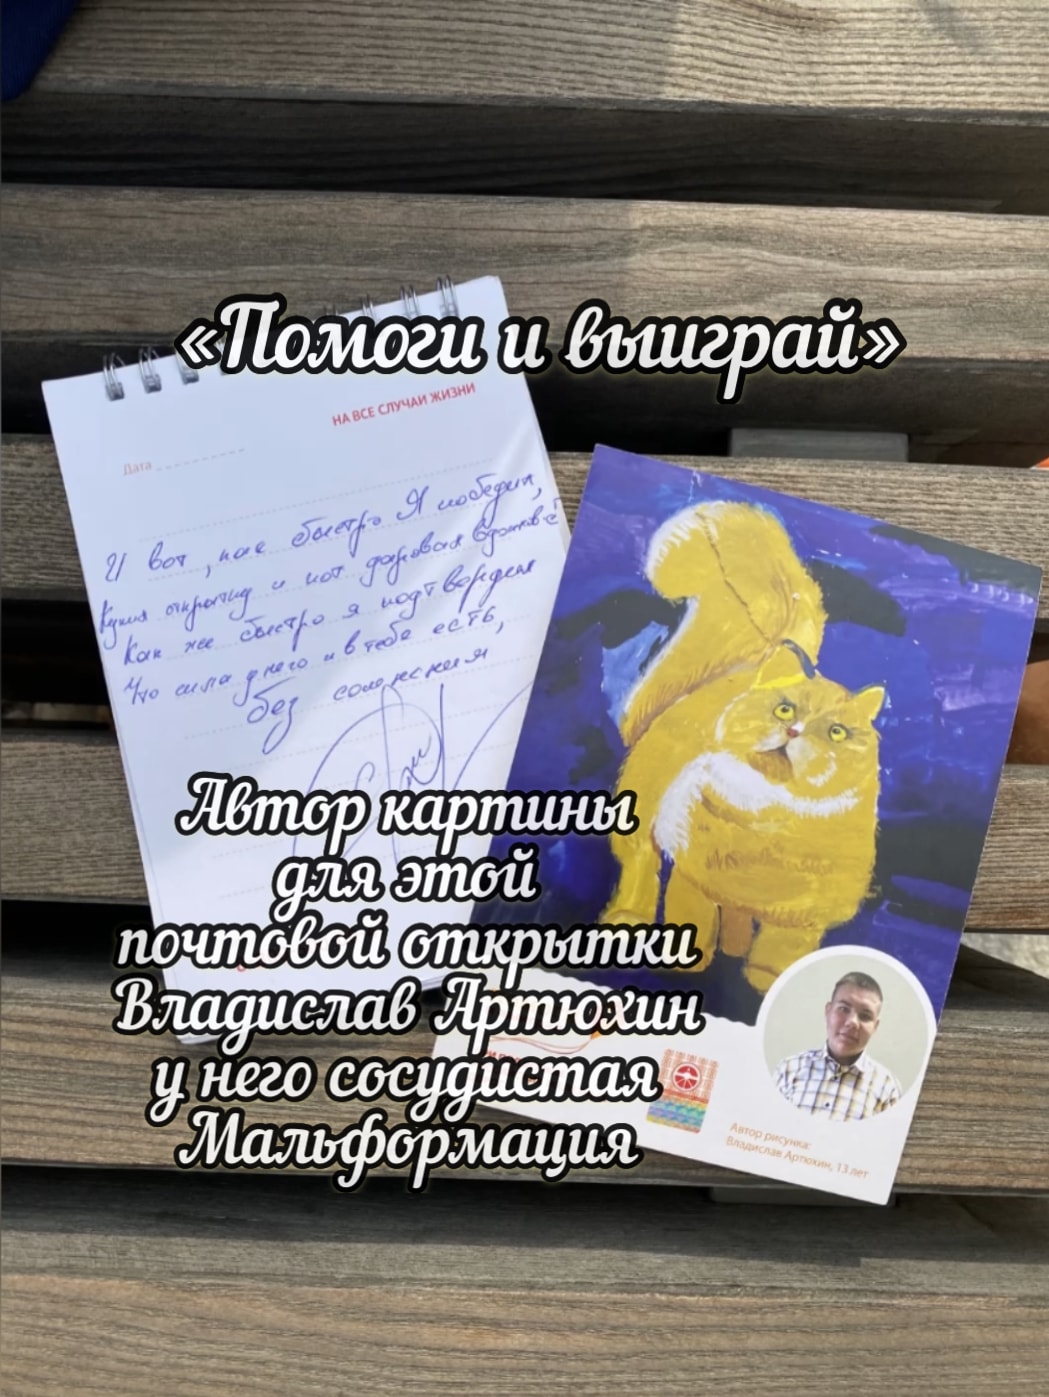 «Помоги и выиграй»
НА ВСЕ СЛУЧАИ ЖИЗНИ
Дата
И вот, как быстро Я победил,
Купил открытку и кот даровал вдохновʼе
Как же быстро я подтвердил
Что сила у него и в тебе есть,
без сомнения
Автор картины
для этой
почтовой открытки
Владислав Артюхин
у него сосудистая
Мальформация
Автор рисунка:
Владислав Артюхин, 13 лет